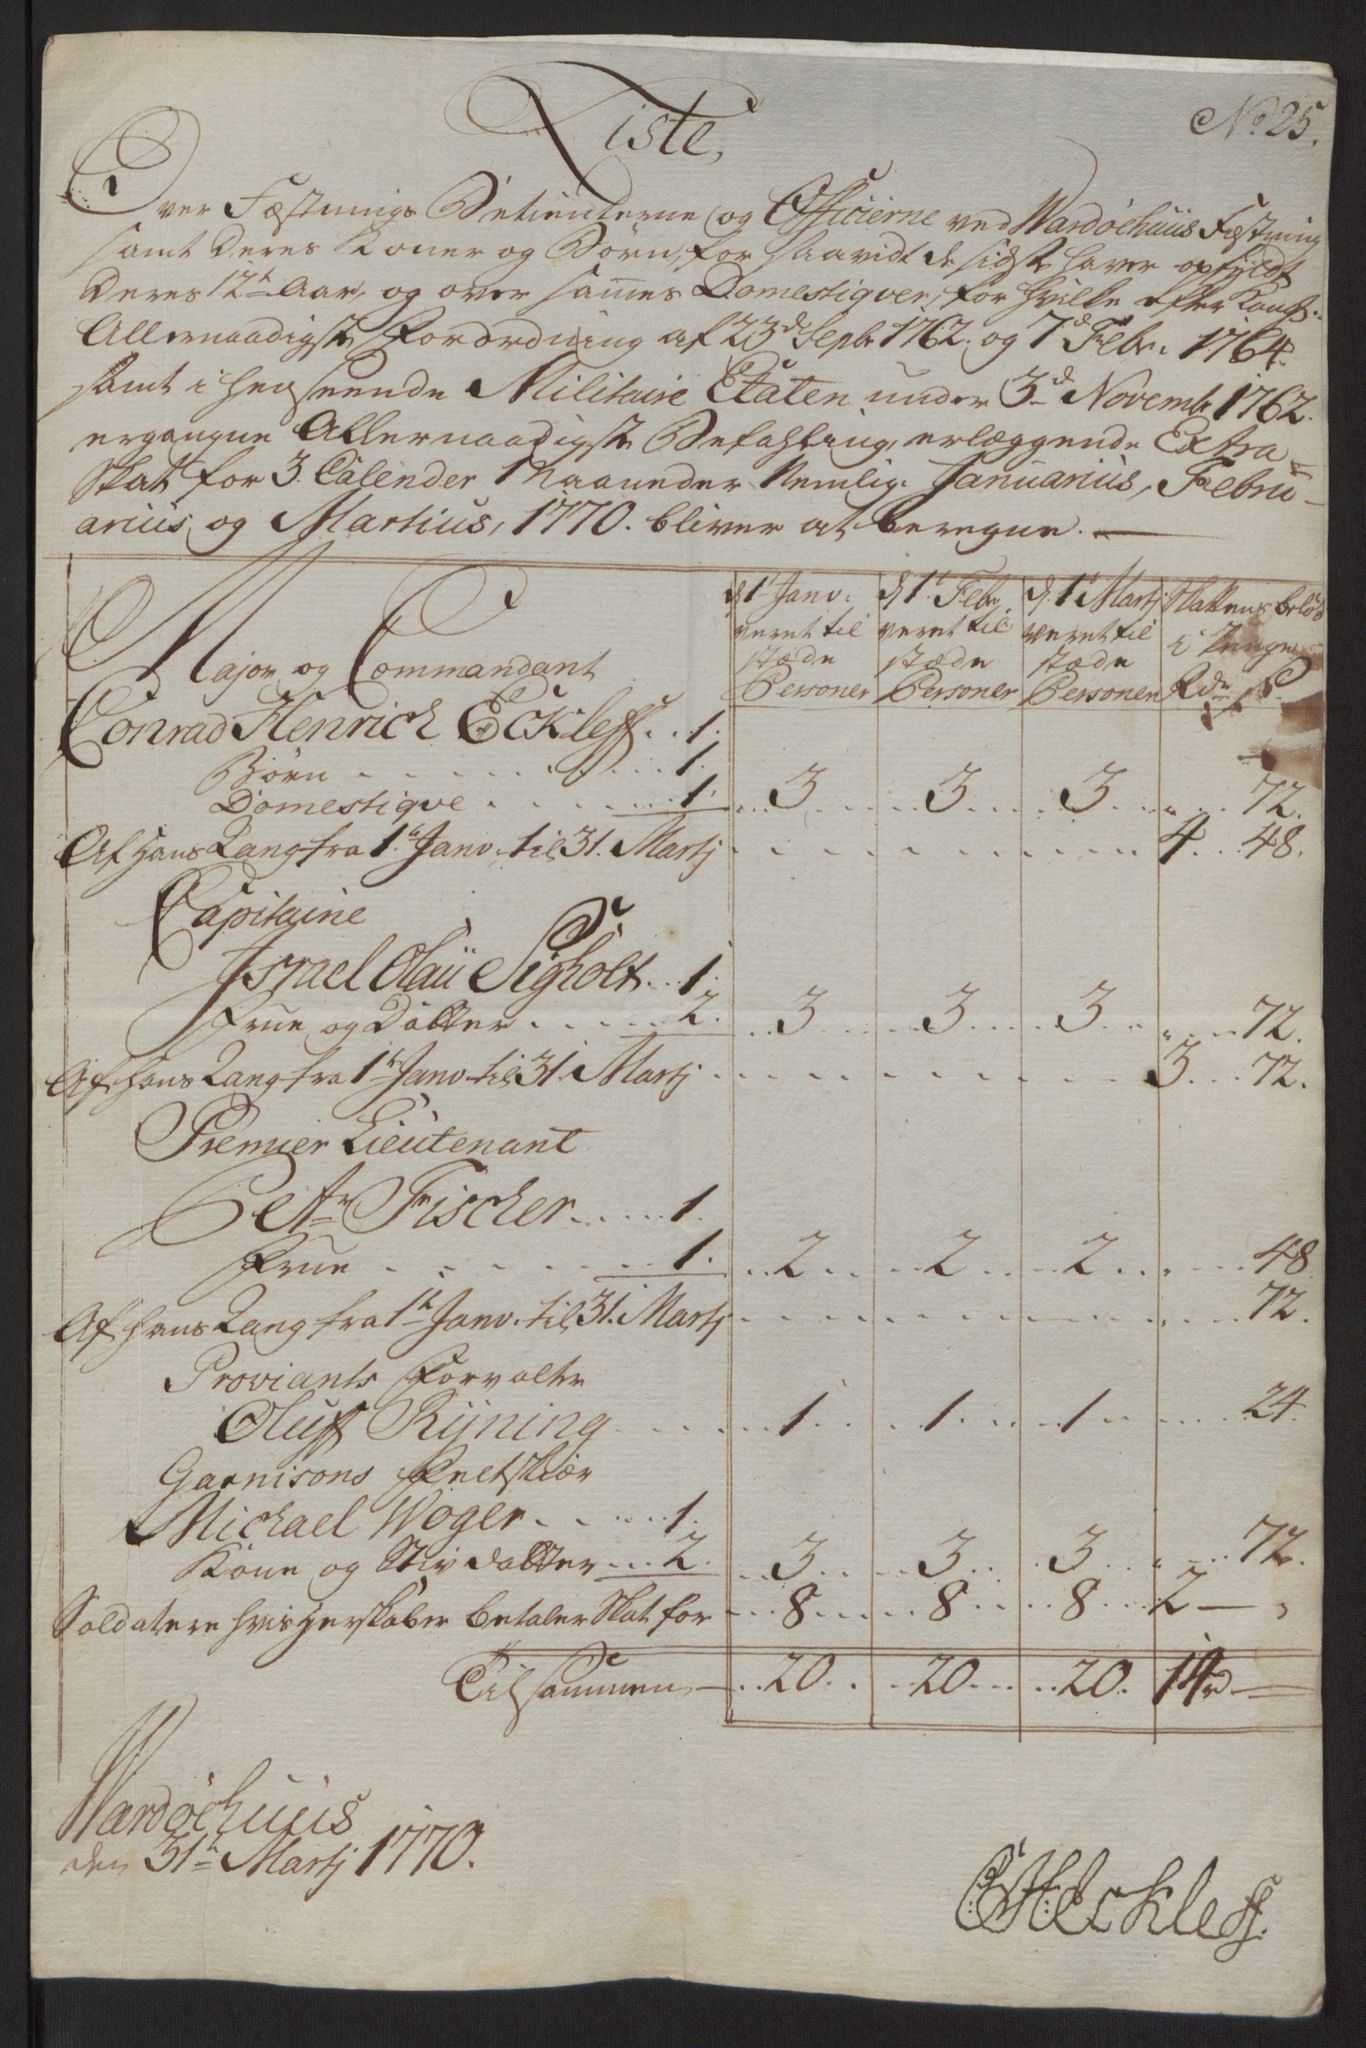 No 25.
Liste,
Over Fæstnings Betienterne og Officierne ved Wardöehuus Fæstning
samt deres Koner og Börn, for saavidt de sidste haver opfyldt
deres 12te Aar, og over sammes Domestiqver, for hvilke efter Kongl:
Allernaadigste Forordning af 23de Sepbr 1762. og 7de Febr. 1764.
samt i henseende Militaire Etaten under 3de Novembr 1762.
ergangne Allernaadigste Befahling, erlæggende Extra-
Skat for 3. Calender Maaneder Nemlig. Januarius, Febru-
arius og Martius, 1770. bliver at beregne.
d 1t Janv: d 1t Febr d. 1t Martj Skattens belöb
veret til veret til veret til i Penge
stæde stæde stæde
Personer Personer Personer Rdr ß
Major og Commandant
Conrad Henrich Eckleff .. 1.
Börn ........ 1.
Domestiqve ....... 1. 3 3 3 " 72.
Af hans Gang fra 1te Janv. til 31. Martj 4 .. 48.
Capitaine
Israel Olaii Sigholt .. 1.
Frue og Datter ...... 2. 3 3 3 " 72.
Af hans Gang fra 1te Janv. til 31. Martj 3 .. 72.
Premier Lieutenant
Petr Fischer ..... 1.
Frue ........ 1. 2 2 2 " 48
Af hans Gang fra 1te Janv. til 31. Martj 72.
Proviants Forvalter
Oluf Rÿning 1 1 1 24.
Garnisons Feltskiær
Michael Woger ..... 1.
Kone og Stivdatter ... 2. 3 3 3 " 72.
Soldatere hvis Herskaber betaler Skat for 8 8 8 2 — "
Tilsammen, — 20. 20. 20. 14rd —
Wardöehuus
den 31te Martj 1770.
CHEckleff.